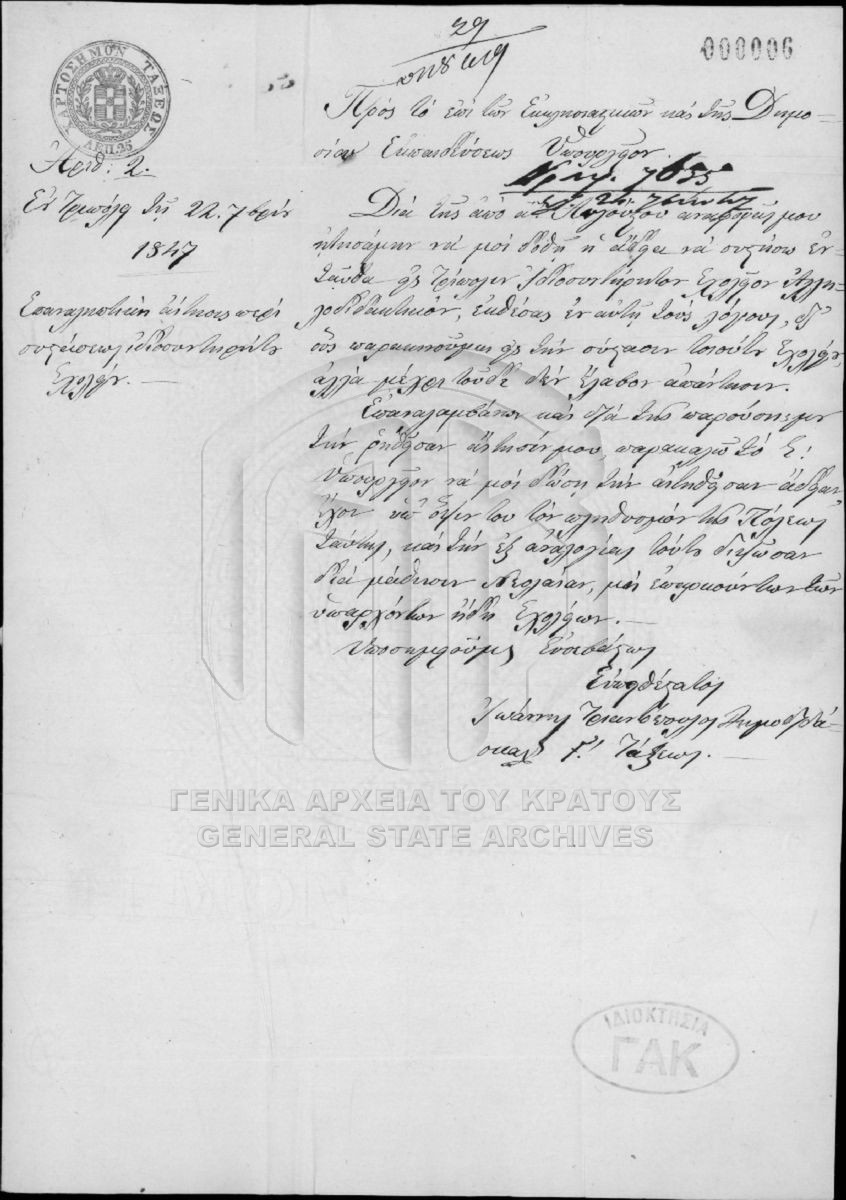 29
000006
ΧΑΡΤΟΣΗΜΟΝ ΤΑΞΕΩΣ
ΛΕΠ.35
Πρὸς τὸ ἐπὶ τῶν Ἐκκλησιαστικῶν καὶ τῆς Δημο-
σίου Ἐκπαιδεύσεως Ὑπουργεῖον.
Ἀριθ: 2.
Ἐν Τριπόλει τῇ 22. 7βρίου
1847
Ἐπαναληπτικὴ αἴτησις περὶ
συστάσεως ἰδιοσυντηρήτου
Σχολείου.
Διὰ τῆς ἀπὸ Αὐγούστου ἀναφορᾶς μου
ᾐτησάμην νὰ μοὶ δοθῇ ἡ ἄδεια νὰ συστήσω ἐν-
ταῦθα εἰς Τρίπολιν ἰδιοσυντήρητον Σχολεῖον Ἀλλη-
λοδιδακτικόν, ἐκθέσας ἐν αὐτῇ τοὺς λόγους, ἐξ
οὓς παρακινοῦμαι εἰς τὴν σύστασιν τοιούτου Σχολείου,
ἀλλὰ μέχρι τοῦδε δὲν ἔλαβον ἀπάντησιν.
Ἐπαναλαμβάνων καὶ διὰ τῆς παρούσης μου
τὴν ῥηθεῖσαν αἴτησίν μου, παρακαλῶ τὸ Σ:
Ὑπουργεῖον νὰ μοὶ δώσῃ τὴν αἰτηθεῖσαν ἄδειαν,
ἔχον ὑπ' ὄψιν του τὸν πληθυσμὸν τῆς Πόλεως
ταύτης, καὶ τὴν ἐξ ἀναλογίας τούτου
διὰ μάθησιν Νεολαίαν, μὴ ἐπαρκούντων τῶν
ὑπαρχόντων ἤδη Σχολείων.
Ὑποσημειοῦμαι Εὐσεβάστως
Εὐπειθέστατος
Ἰωάννης Τριανταφυλλόπουλος Δημοδιδά-
σκαλος Γ! Τάξεως.
ΓΕΝΙΚΑ ΑΡΧΕΙΑ ΤΟΥ ΚΡΑΤΟΥΣ
GENERAL STATE ARCHIVES
ΙΔΙΟΚΤΗΣΙΑ
ΓΑΚ